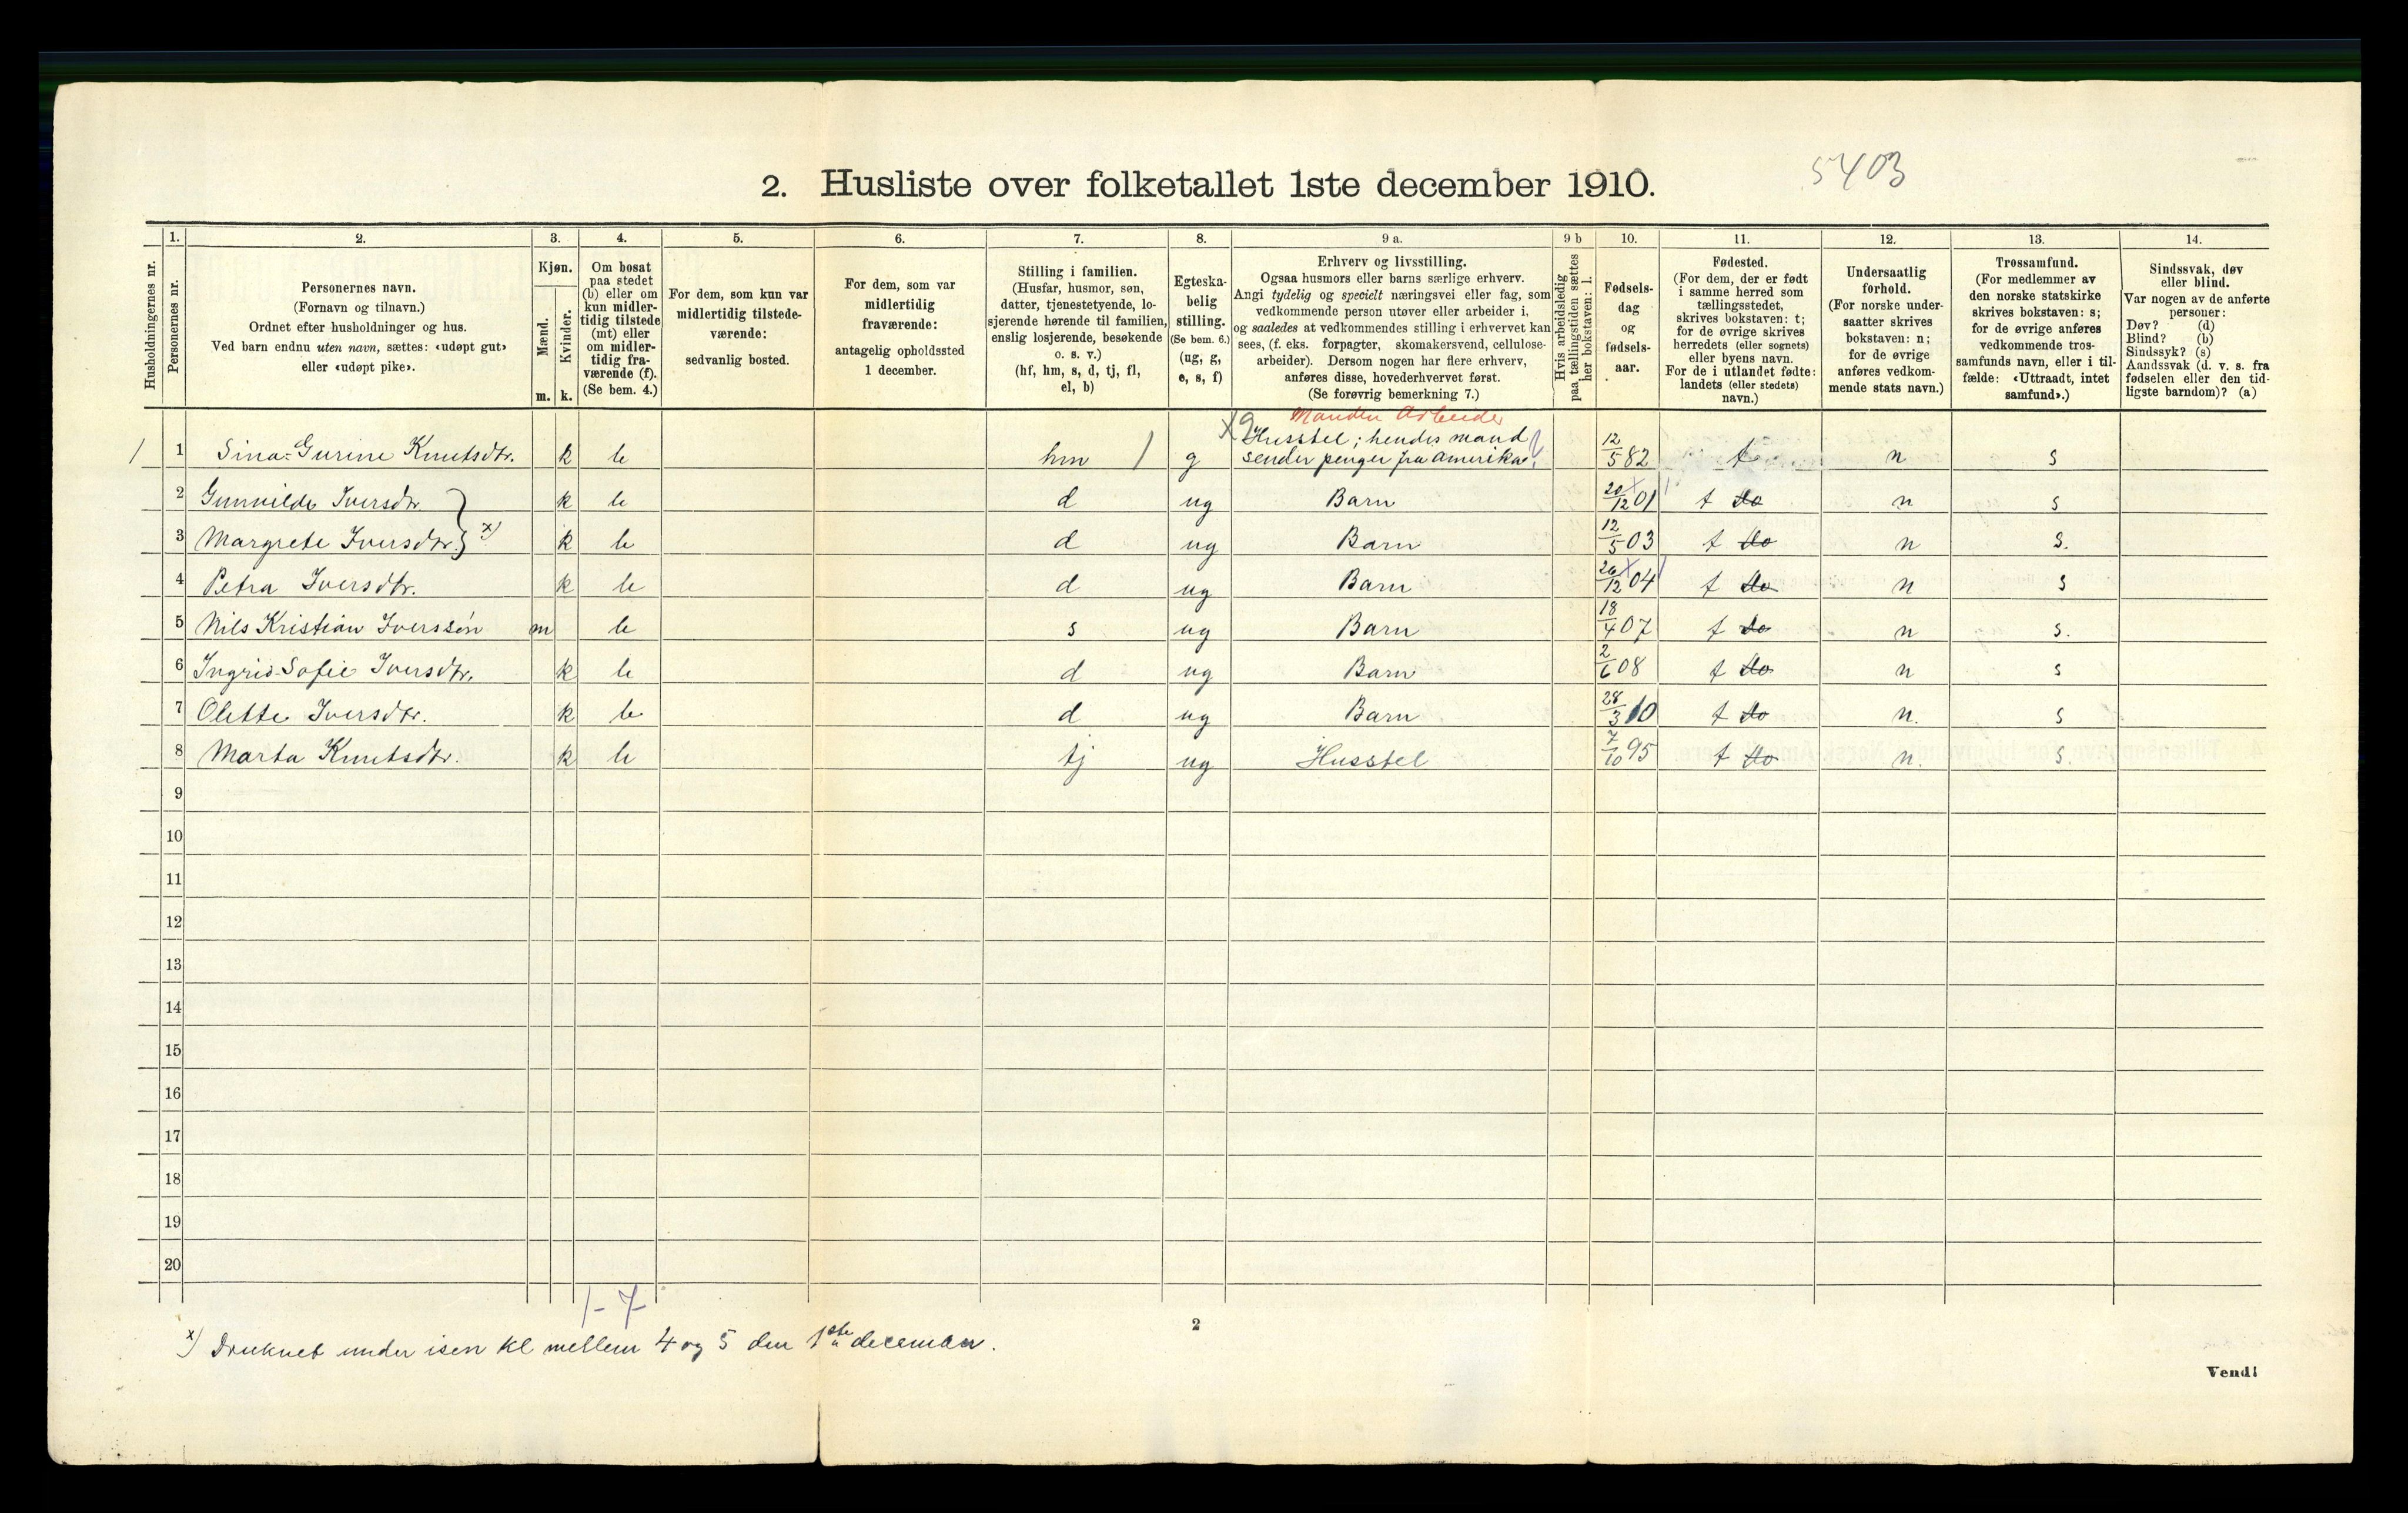 5403
2. Husliste over folketallet 1ste december 1910.
Husholdningernes nr.
1.
Personernes nr.
2.
Personernes navn.
(Fornavn og tilnavn.)
Ordnet efter husholdninger og hus.
Ved barn endnu uten navn, sættes: «udøpt gut»
eller «udøpt pike».
3.
Kjøn.
Mænd.
Kvinder.
m. k.
4.
Om bosat
paa stedet
(b) eller om
kun midler-
tidig tilstede
(mt) eller
om midler-
tidig fra-
værende (f).
(Se bem. 4.)
5.
For dem, som kun var
midlertidig tilstede-
værende:
sedvanlig bosted.
6.
For dem, som var
midlertidig
fraværende:
antagelig opholdssted
1 december.
7.
Stilling i familien.
(Husfar, husmor, søn,
datter, tjenestetyende, lo-
sjerende hørende til familien,
enslig losjerende, besøkende
o. s. v.)
(hf, hm, s, d, tj, fl,
el, b)
8.
Egteska-
belig
stilling.
(Se bem. 6.)
(ug, g,
e, s, f)
9 a.
Erhverv og livsstilling.
Ogsaa husmors eller barns særlige erhverv.
Angi tydelig og specielt næringsvei eller fag, som
vedkommende person utøver eller arbeider i,
og saaledes at vedkommendes stilling i erhvervet kan
sees, (f. eks. forpagter, skomakersvend, cellulose-
arbeider). Dersom nogen har flere erhverv,
anføres disse, hovederhvervet først.
(Se forøvrig bemerkning 7.)
9 b
Hvis arbeidsledig
paa tællingstiden sættes
her bokstaven: l.
10.
Fødsels-
dag
og
fødsels-
aar.
11.
Fødested.
(For dem, der er født
i samme herred som
tællingsstedet,
skrives bokstaven: t;
for de øvrige skrives
herredets (eller sognets)
eller byens navn.
For de i utlandet fødte:
landets (eller stedets)
navn.)
12.
Undersaatlig
forhold.
(For norske under-
saatter skrives
bokstaven: n;
for de øvrige
anføres vedkom-
mende stats navn.)
13.
Trossamfund.
(For medlemmer av
den norske statskirke
skrives bokstaven: s;
for de øvrige anføres
vedkommende tros-
samfunds navn, eller i til-
fælde: «Uttraadt, intet
samfund».)
14.
Sindssvak, døv
eller blind.
Var nogen av de anførte
personer:
Døv? (d)
Blind? (b)
Sindssyk? (s)
Aandssvak (d. v. s. fra
fødselen eller den tid-
ligste barndom)? (a)
Manden Arbeider
1 1 Sina-Gurine Knutsdtr. k b hm g Husstel; hendes mand sender penger fra Amerika. 12/5 82 t n s
2 Gunnilde Iversdtr. k b d ug Barn 20/12 01 t do n s
3 Margrete Iversdtr. x) k b d ug Barn 12/5 03 t do n s.
4 Petra Iversdtr. k b d ug Barn 26/12 04 t do n s
5 Nils Kristian Iverssøn m b s ug Barn 18/4 07 t do n s.
6 Ingrid-Sofie Iversdtr. k b d ug Barn 2/6 08 t do n s
7 Olette Iversdtr. k b d ug Barn 28/3 10 t do n. s
8 Marta Knutsdtr. k b tj ug Husstel 7/10 95 t do n. s.
9
10
11
12
13
14
15
16
17
18
19
20
1-7
2
x) Druknet under isen kl mellem 4 og 5 den 1ste december.
Vend!